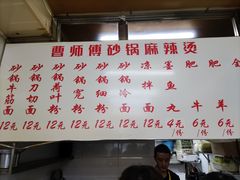 曹师傅砂锅麻辣烫
砂锅牛筋面
12元
砂锅刀切面
12元
砂锅荷叶面
12元
砂锅宽粉
12元
砂锅细粉
12元
砂锅冷面
12元
凉拌面
12元
墨鱼丸
4元/份
肥牛
6元/份
肥羊
6元/份